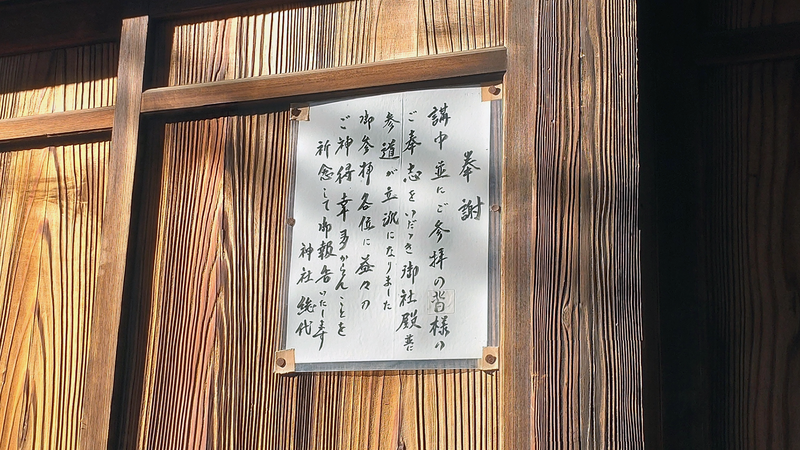 奉謝
講中並にご参拝の皆様の
ご奉志をいただき御社殿並に
参道が立派になりました
御参拝各位に益々の
ご神得幸多からんことを
祈念して御報告いたします
神社総代